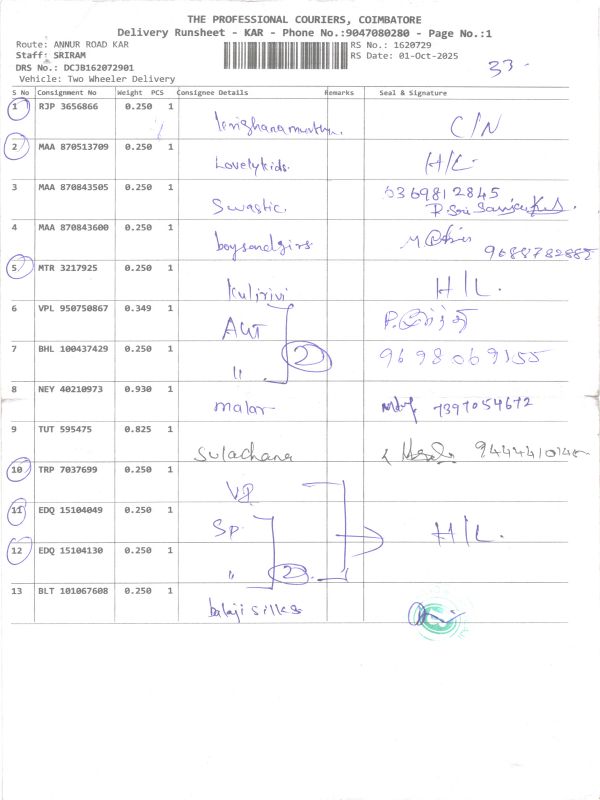 THE PROFESSIONAL COURIERS, COIMBATORE
Delivery Runsheet - KAR - Phone No.:9047080280 - Page No.:1
Route: ANNUR ROAD KAR RS No.: 1620729
Staff: SRIRAM RS Date: 01-Oct-2025
DRS No.: DCJB162072901 33-
Vehicle: Two Wheeler Delivery
S No Consignment No Weight PCS Consignee Details Remarks Seal & Signature
1 RJP 3656866 0.250 1 C/N
2 MAA 870513709 0.250 1 Lovelykids. H/L.
3 MAA 870843505 0.250 1 Swastic. 6369812845
4 MAA 870843600 0.250 1 boysandgirs 9688782885
5 MTR 3217925 0.250 1 Kulirivi H/L.
6 VPL 950750867 0.349 1
7 BHL 100437429 0.250 1 " 2 9698069155
8 NEY 40210973 0.930 1 malar 7397054672
9 TUT 595475 0.825 1 Sulachana
10 TRP 7037699 0.250 1
11 EDQ 15104049 0.250 1 SP. H/L.
12 EDQ 15104130 0.250 1 " 2
13 BLT 101067608 0.250 1 balaji silks